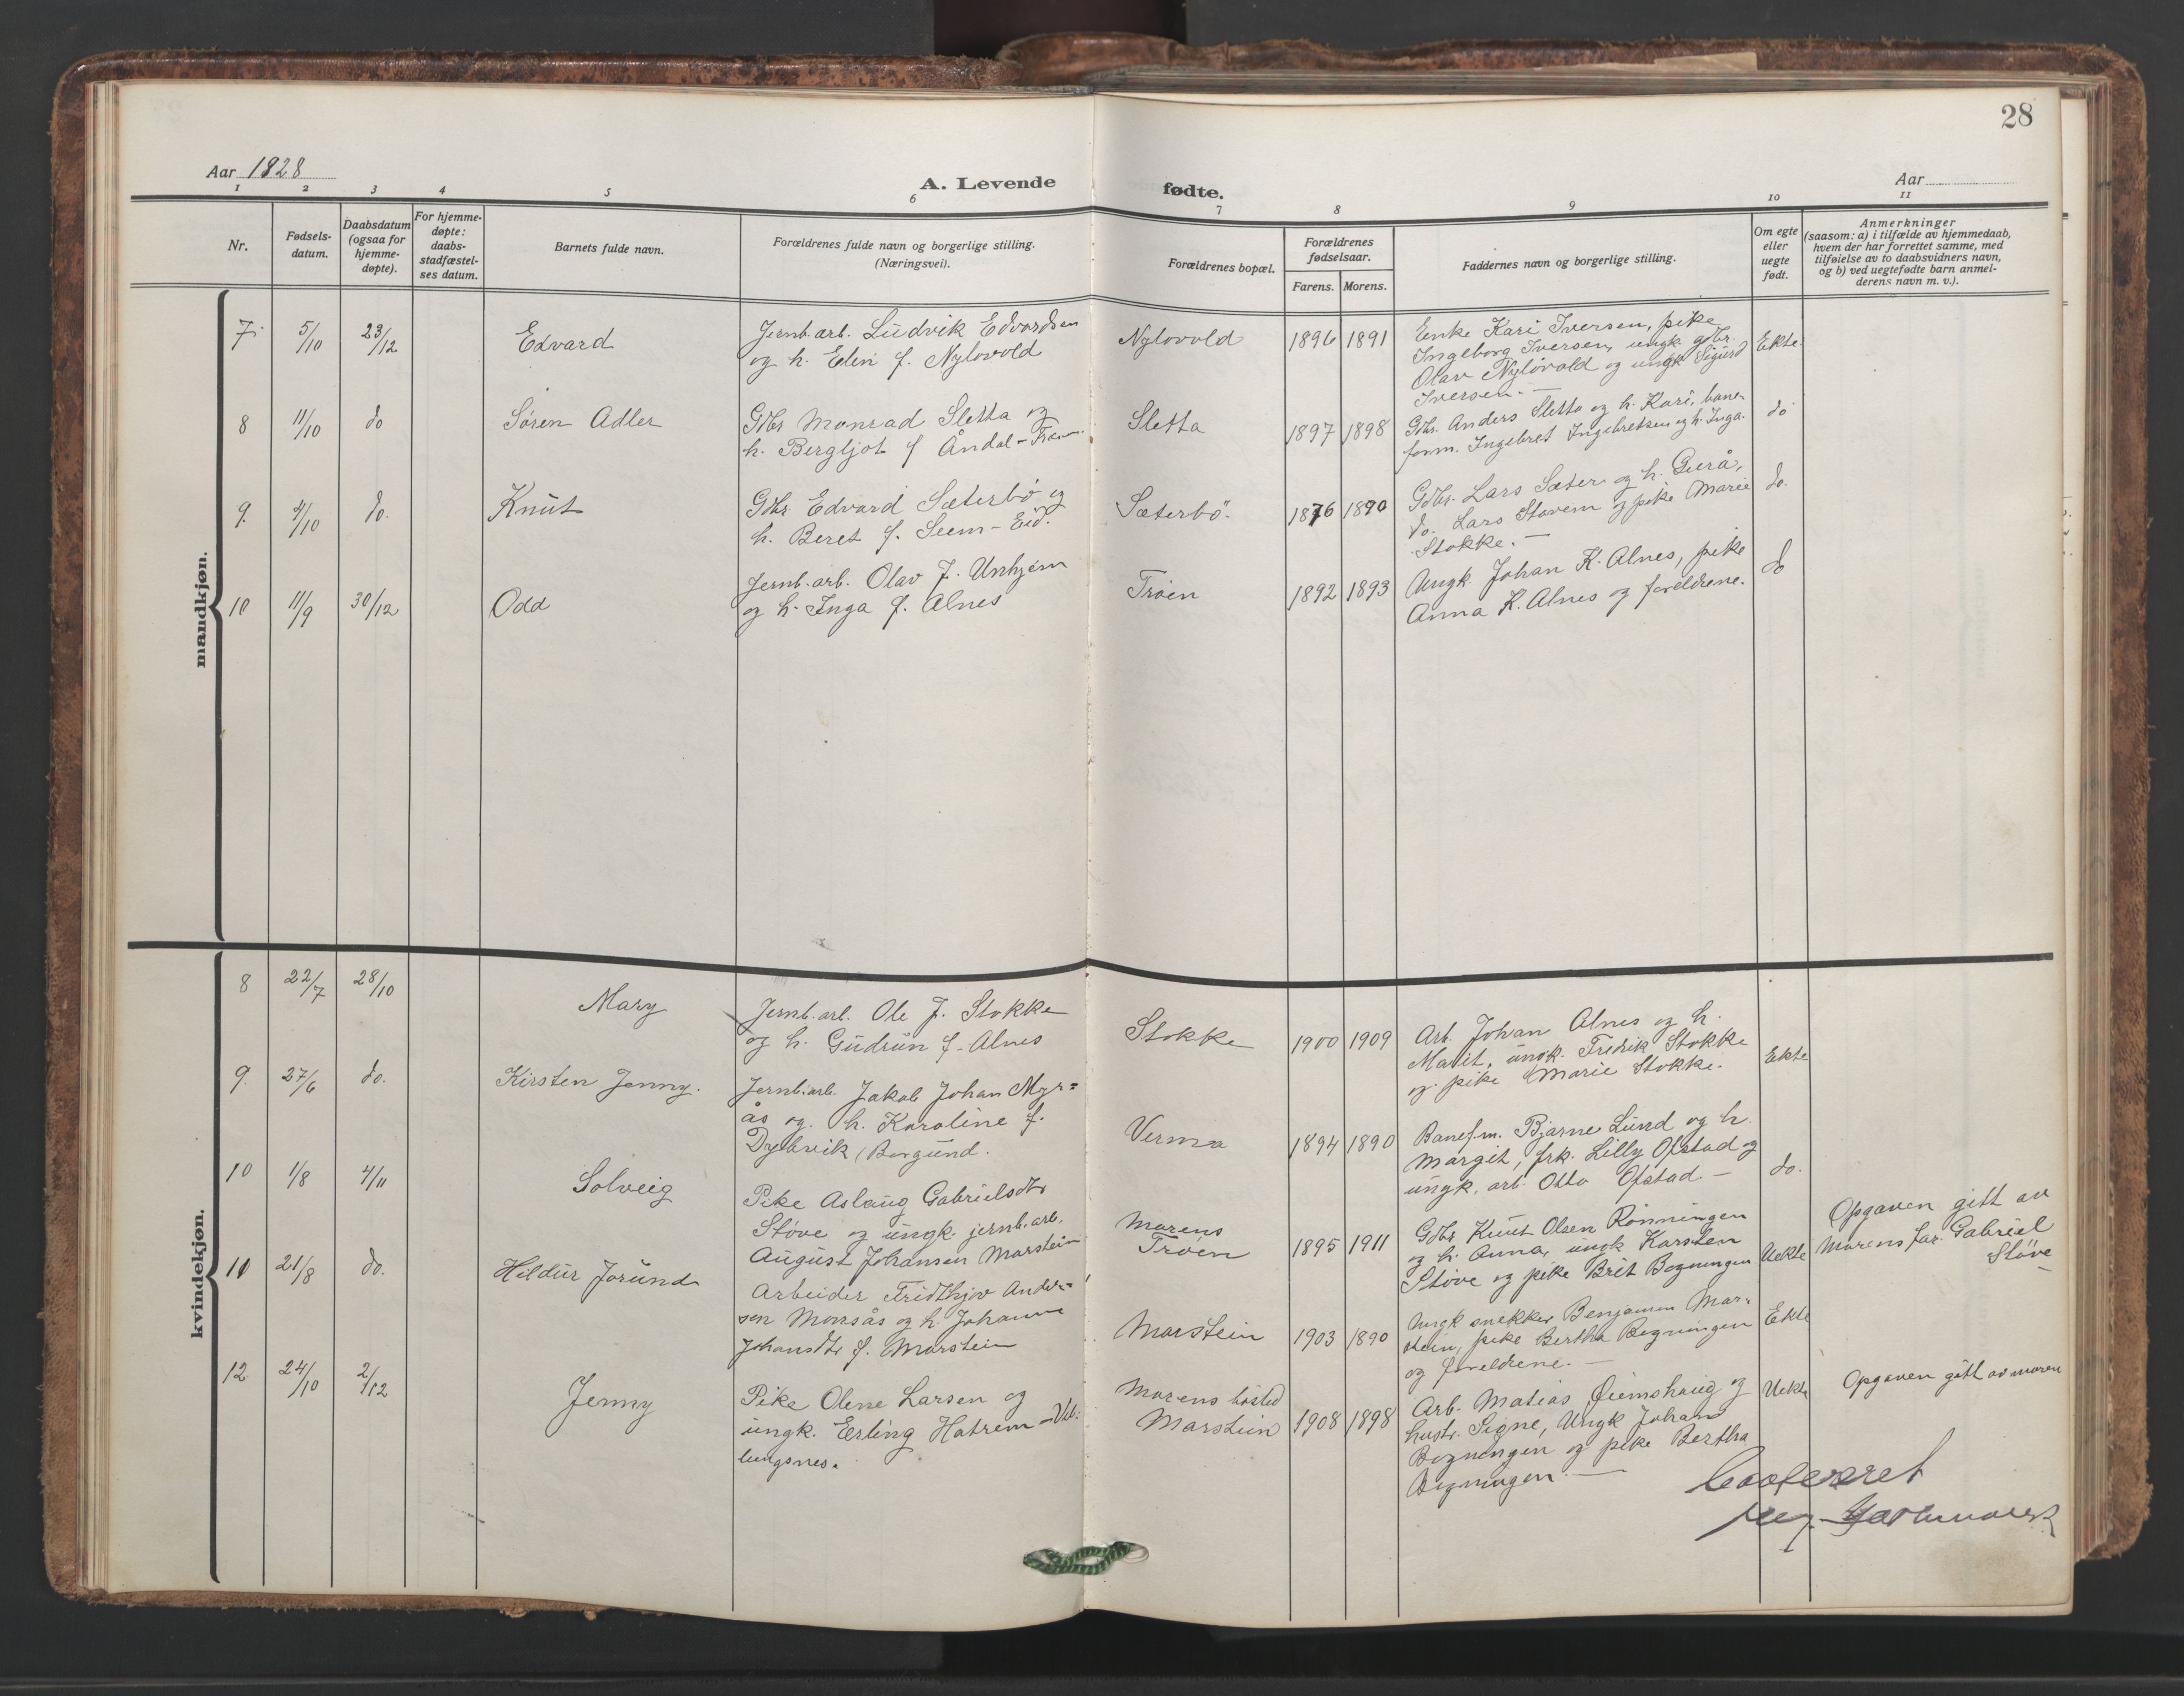 28
Aar 1828
A. Levende fødte.
Aar
1 2 3 4 5 6 7 8 9 10 11
Nr.
Fødsels-
datum.
Daabsdatum
(ogsaa for
hjemme-
døpte).
For hjemme-
døpte:
daabs-
stadfæstel-
ses datum.
Barnets fulde navn.
Forældrenes fulde navn og borgerlige stilling.
(Næringsvei).
Forældrenes bopæl.
Forældrenes
fødselsaar.
Farens. Morens.
Faddernes navn og borgerlige stilling.
Om egte
eller
uegte
født.
Anmerkninger
(saasom: a) i tilfælde av hjemmedaab,
hvem der har forrettet samme, med
tilføielse av to daabsvidners navn,
og b) ved uegtefødte barn anmel-
derens navn m. v.).
mandkjøn.
7. 5/10 23/12 Edvard
Jernb.arb. Ludvik Edvardsen
og h. Elen f. Nylovold
Nylovold 1896 1891
Enke Kari Iversen, pike
Ingeborg Iversen, ungk. gbr.
Olav Nylovold og ungk. Sigurd
Iversen. —
Ekte.
8 11/10 do Søren Adler
Gdbr Monrad Sletta og
h. Bergljot f Åndal - Fræn.
Sletta 1897 1898
Gdbr. Anders Sletta og h. Kari, bane-
form. Ingebret Ingebretsen og h. Inga.
do
9. 4/10 do. Knut
Gdbr Edvard Sæterbö og
h. Beret f. Seem - Eid.
Sæterbö. 1876 1890
Gdbr. Lars Sæter og h. Gurå,
do. Lars Stavem og pike Marie
Stokke. —
do.
10 11/9 30/12 Odd
Jernb.arb. Olav J. Unhjem
og h. Inga f. Alnes
Tröen 1892 1893
Ungk. Johan K. Alnes, pike
Anna K. Alnes og foreldrene.
do
kvindekjøn.
8 22/7 28/10 Mary
Jernb.arb. Ole J. Stokke
og h. Gudrun f. Alnes
Stokke 1900 1909
Arb. Johan Alnes og h.
Marit, ungk. Fredrik Stokke
og pike Marie Stokke.
Ekte
9. 27/6 do. Kirsten Jenny.
Jernb.arb. Jakob Johan Myr=
ås og h. Karoline f.
Dybvik (Borgund.
Verma 1894 1890
Banef.m. Bjarne Lund og h.
Margit, frk. Lilly Ofstad og
ungk. arb. Otto Ofstad. —
do.
10 1/8 4/11 Solveig
Pike Aslaug Gabrielsdtr
Stöve og ungk. jernb.arb.
August Johansen Marstein
Morens
Tröen 1895 1911
Gdbr Knut Olsen Rönningen
og h. Anna, ungk Karsten
Stöve og pike Brit Bogningen
Uekte
Opgaven gitt av
Morens far. Gabriel
Stöve
11 21/8 do. Hildur Jorund
Arbeider Fridthjov Ander=
sen Monsås og h. Johanne
Johansdtr f. Marstein
Marstein 1903 1890
Ungk snekker Benjamin Mar-
stein, pike Bertha Bogningen
og foreldrene. —
Ekte
12 24/10 2/12 Jenny
Pike Olene Larsen og
ungk. Erling Hatrem - Veb-
lungsnes.
Morens bosted
Marstein 1908 1898
Arb. Matias Öiemshaug og
hustr. Signe, Ungk Johan
Bogningen og pike Bertha
Bogningen. —
Uekte
Opgaven gitt av moren
Conferret